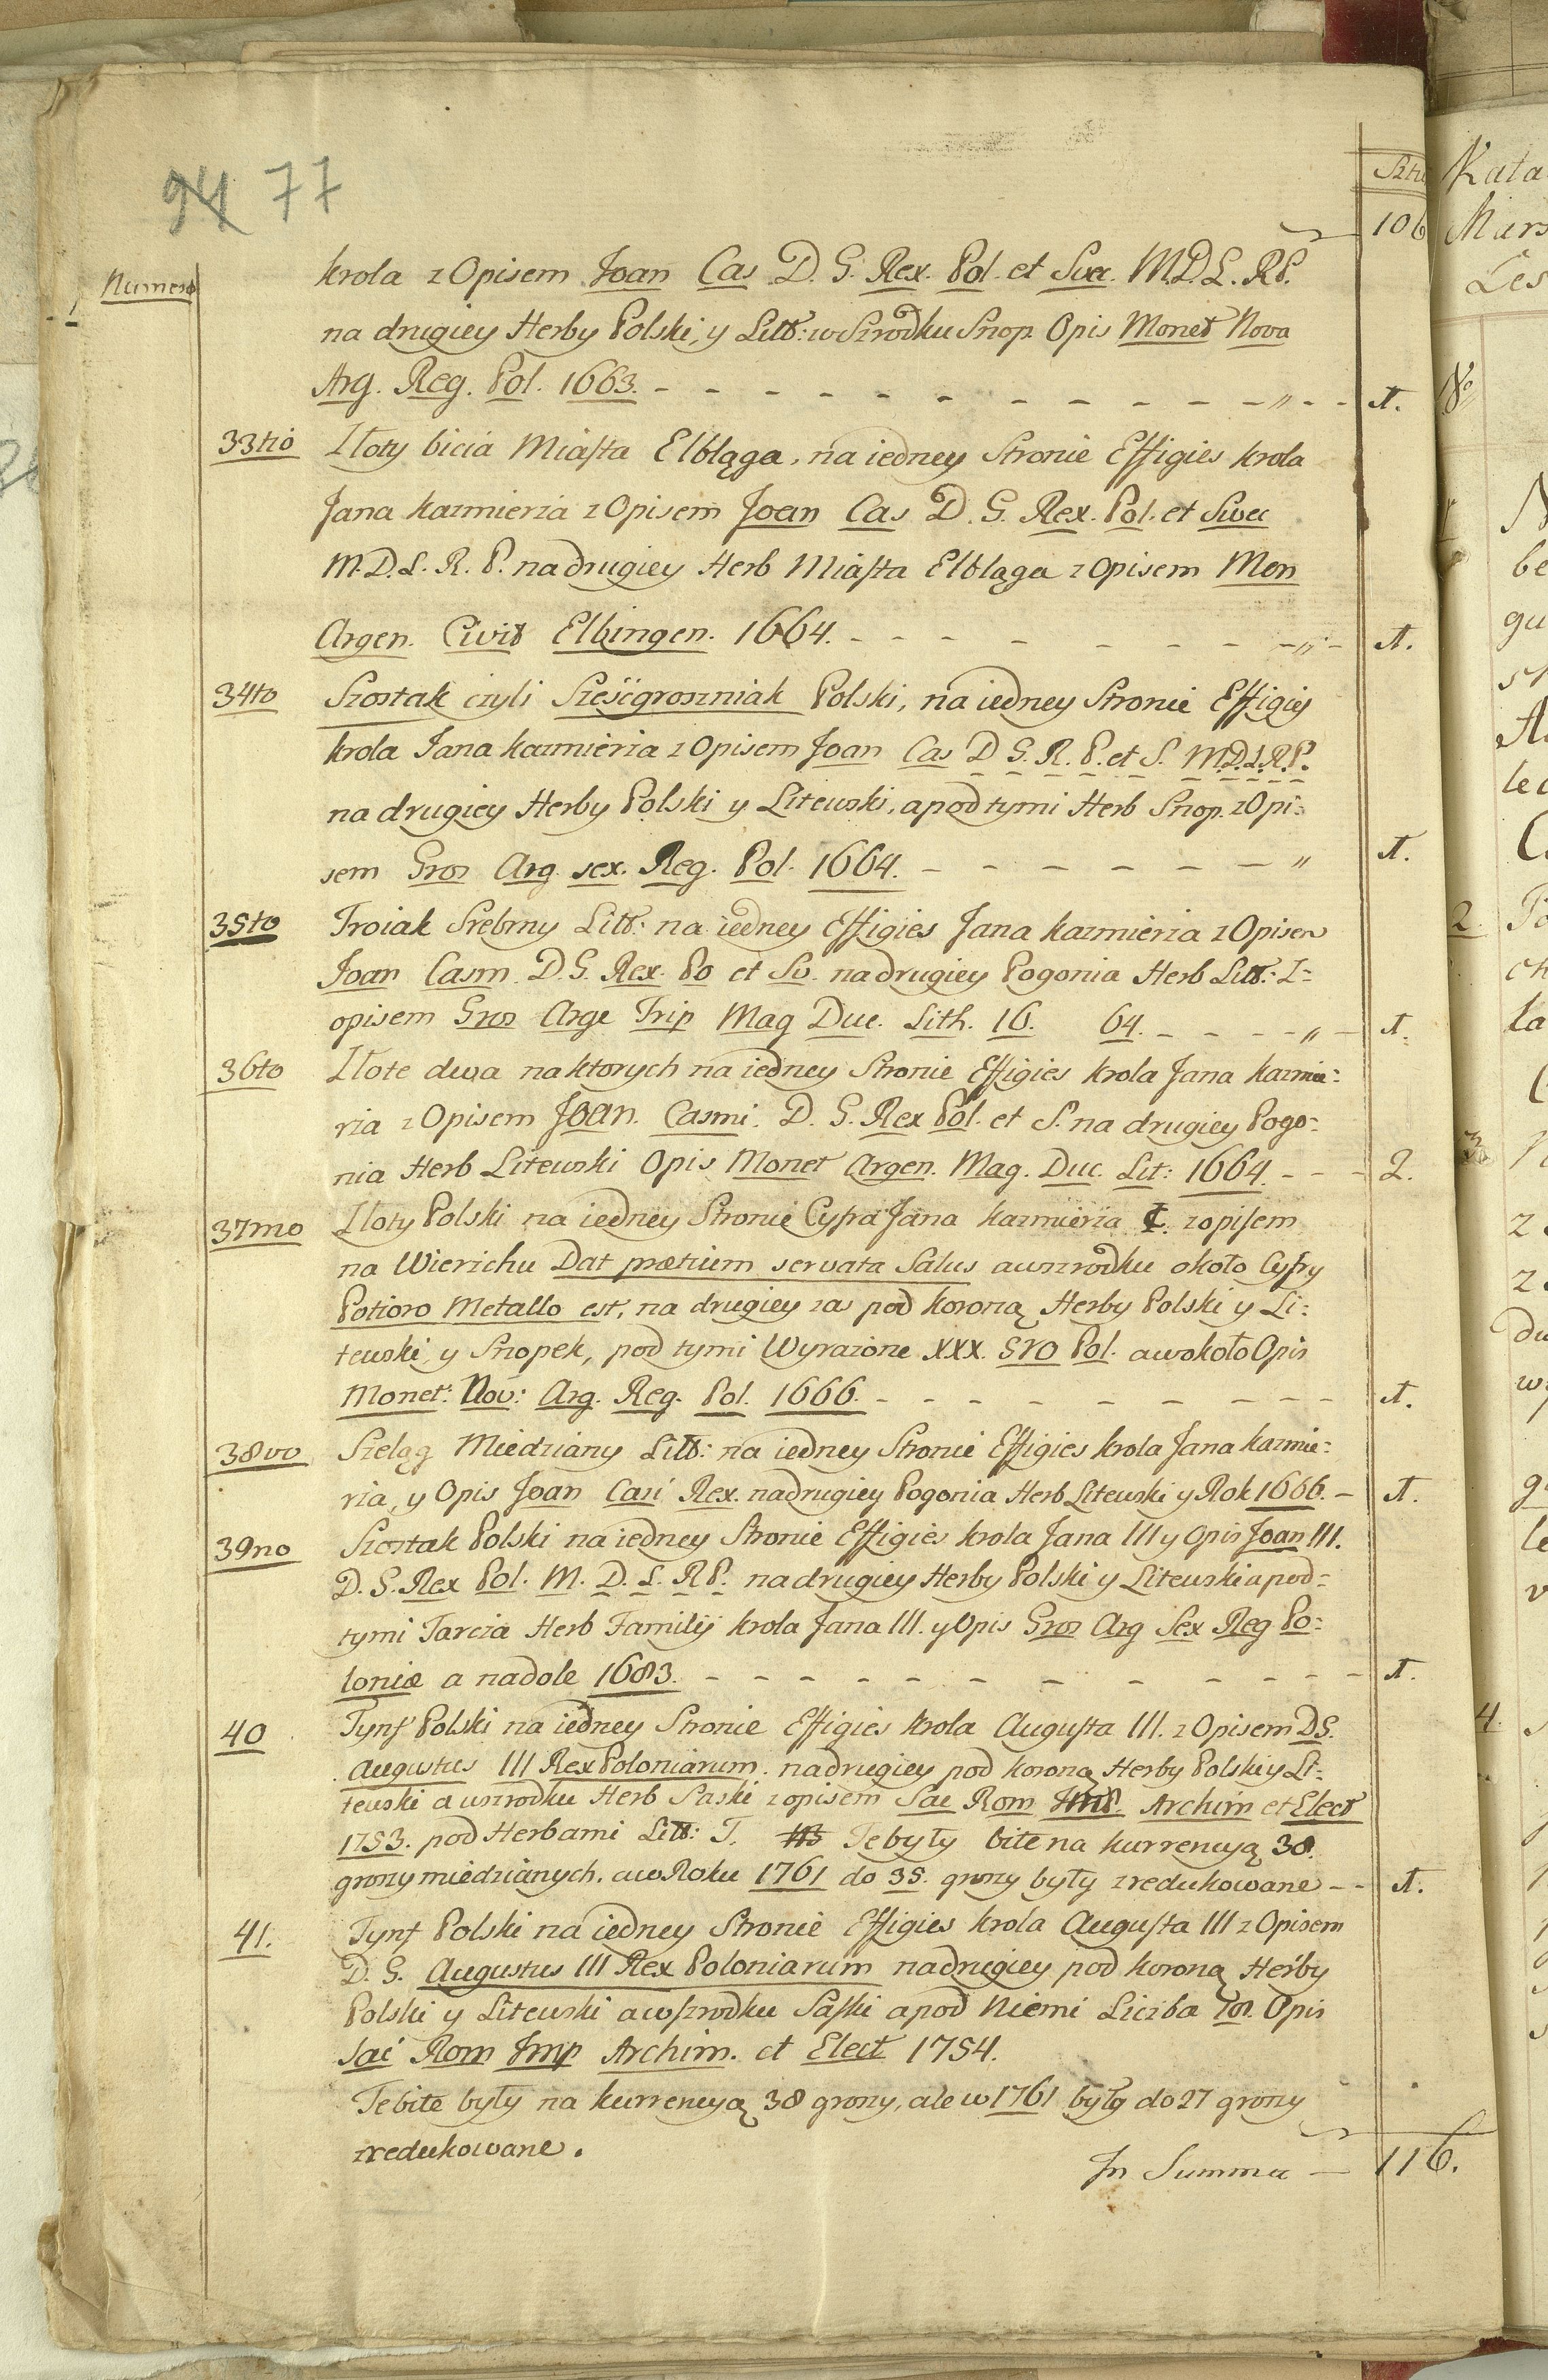 94 77
Sztu
106
Numero
krola z Opisem Joan Cas D. G. Rex. Pol. et Suec. M.D.L.R.P.
na drugiey Herby Polski, y Litt: w Szrodku Snop. Opis Monet Nova
Arg. Reg. Pol. 1663. - - - - - - - - - - - - 1.
33tio Złoty bicia Miasta Elbląga, na iedney Stronie Effigies krola
Jana kazmierza z Opisem Joan Cas D. G. Rex. Pol. et Suec
M.D.L.R.P. na drugiey Herb Miasta Elbląga z Opisem Mon
Argen. Civit Elbingen. 1664. - - - - - - - - 1.
34to Szostak czyli Sześćgroszniak Polski, na iedney Stronie Effigies
krola Jana kazmierza z Opisem Joan Cas D G. R. P. et S. M.D.L.R.P.
na drugiey Herby Polski y Litewski, a pod tymi Herb Snop. z Opi:
sem Gros Arg sex. Reg. Pol. 1664. - - - - - - - 1.
35to Troiak Srebrny Litt: na iedney Effigies Jana kazmierza z Opisem
Joan Casm. D. G. Rex. Po et Sv. na drugiey Pogonia Herb Litt: Z=
opisem Gros Arge Trip Mag Duc. Lith. 16. 64. - - - - 1.
36to Złote dwa na ktorych na iedney Stronie Effigies krola Jana kazmie:
rza z Opisem Joan. Casmi. D. G. Rex Pol. et S. na drugiey Pogo:
nia Herb Litewski Opis Monet Argen. Mag. Duc. Lit: 1664. - - - 2.
37mo Złoty Polski na iedney Stronie Cyfra Jana kazmierza I. z opisem
na Wierzchu Dat pretium servata Salus a w szrodku około Cyfry
Potioro Metallo est, na drugiey zas pod koroną Herby Polski y Li:
tewski, y Snopek, pod tymi Wyrazone XXX. gro Pol. a w około Opis
Monet: Nov: Arg. Reg. Pol. 1666. - - - - - - - - 1.
38vo Szeląg Miedziany Litt: na iedney Stronie Effigies krola Jana kazmie:
rza, y Opis Joan Casi Rex. na drugiey Pogonia Herb Litewski y Rok 1666. - 1.
39no Szostak Polski na iedney Stronie Effigies krola Jana III y Opis Joan III.
D. G. Rex Pol. M. D. L. R P. na drugiey Herby Polski y Litewski a pod=
tymi Tarcza Herb Familij krola Jana III. y Opis Gros Arg Sex Reg Po:
loniæ a na dole 1683. - - - - - - - - - - 1.
40 Tynf Polski na iedney Stronie Effigies krola Augusta III. z Opisem DG.
Augustus III Rex Poloniarum. na drugiey pod koroną Herby Polski y Li:
tewski a w szrodku Herb Saski z opisem Sac Rom Imp. Archim et Elect
1753. pod Herbami Litt: T. Te były bite na kurrencyą 38.
groszy miedzianych. a w Roku 1761 do 35. groszy były zredukowane - - 1.
41. Tynf Polski na iedney Stronie Effigies krola Augusta III z Opisem
D. G. Augustus III Rex Poloniarum na drugiey pod koroną Herby
Polski y Litewski a w szrodku Saski a pod Niemi Liczba Opis
Sac Rom Imp Archim. et Elect 1754.
Te bite były na kurrencyą 38 groszy, ale w 1761 były do 27 groszy
zredukowane.
In Summa - 116.